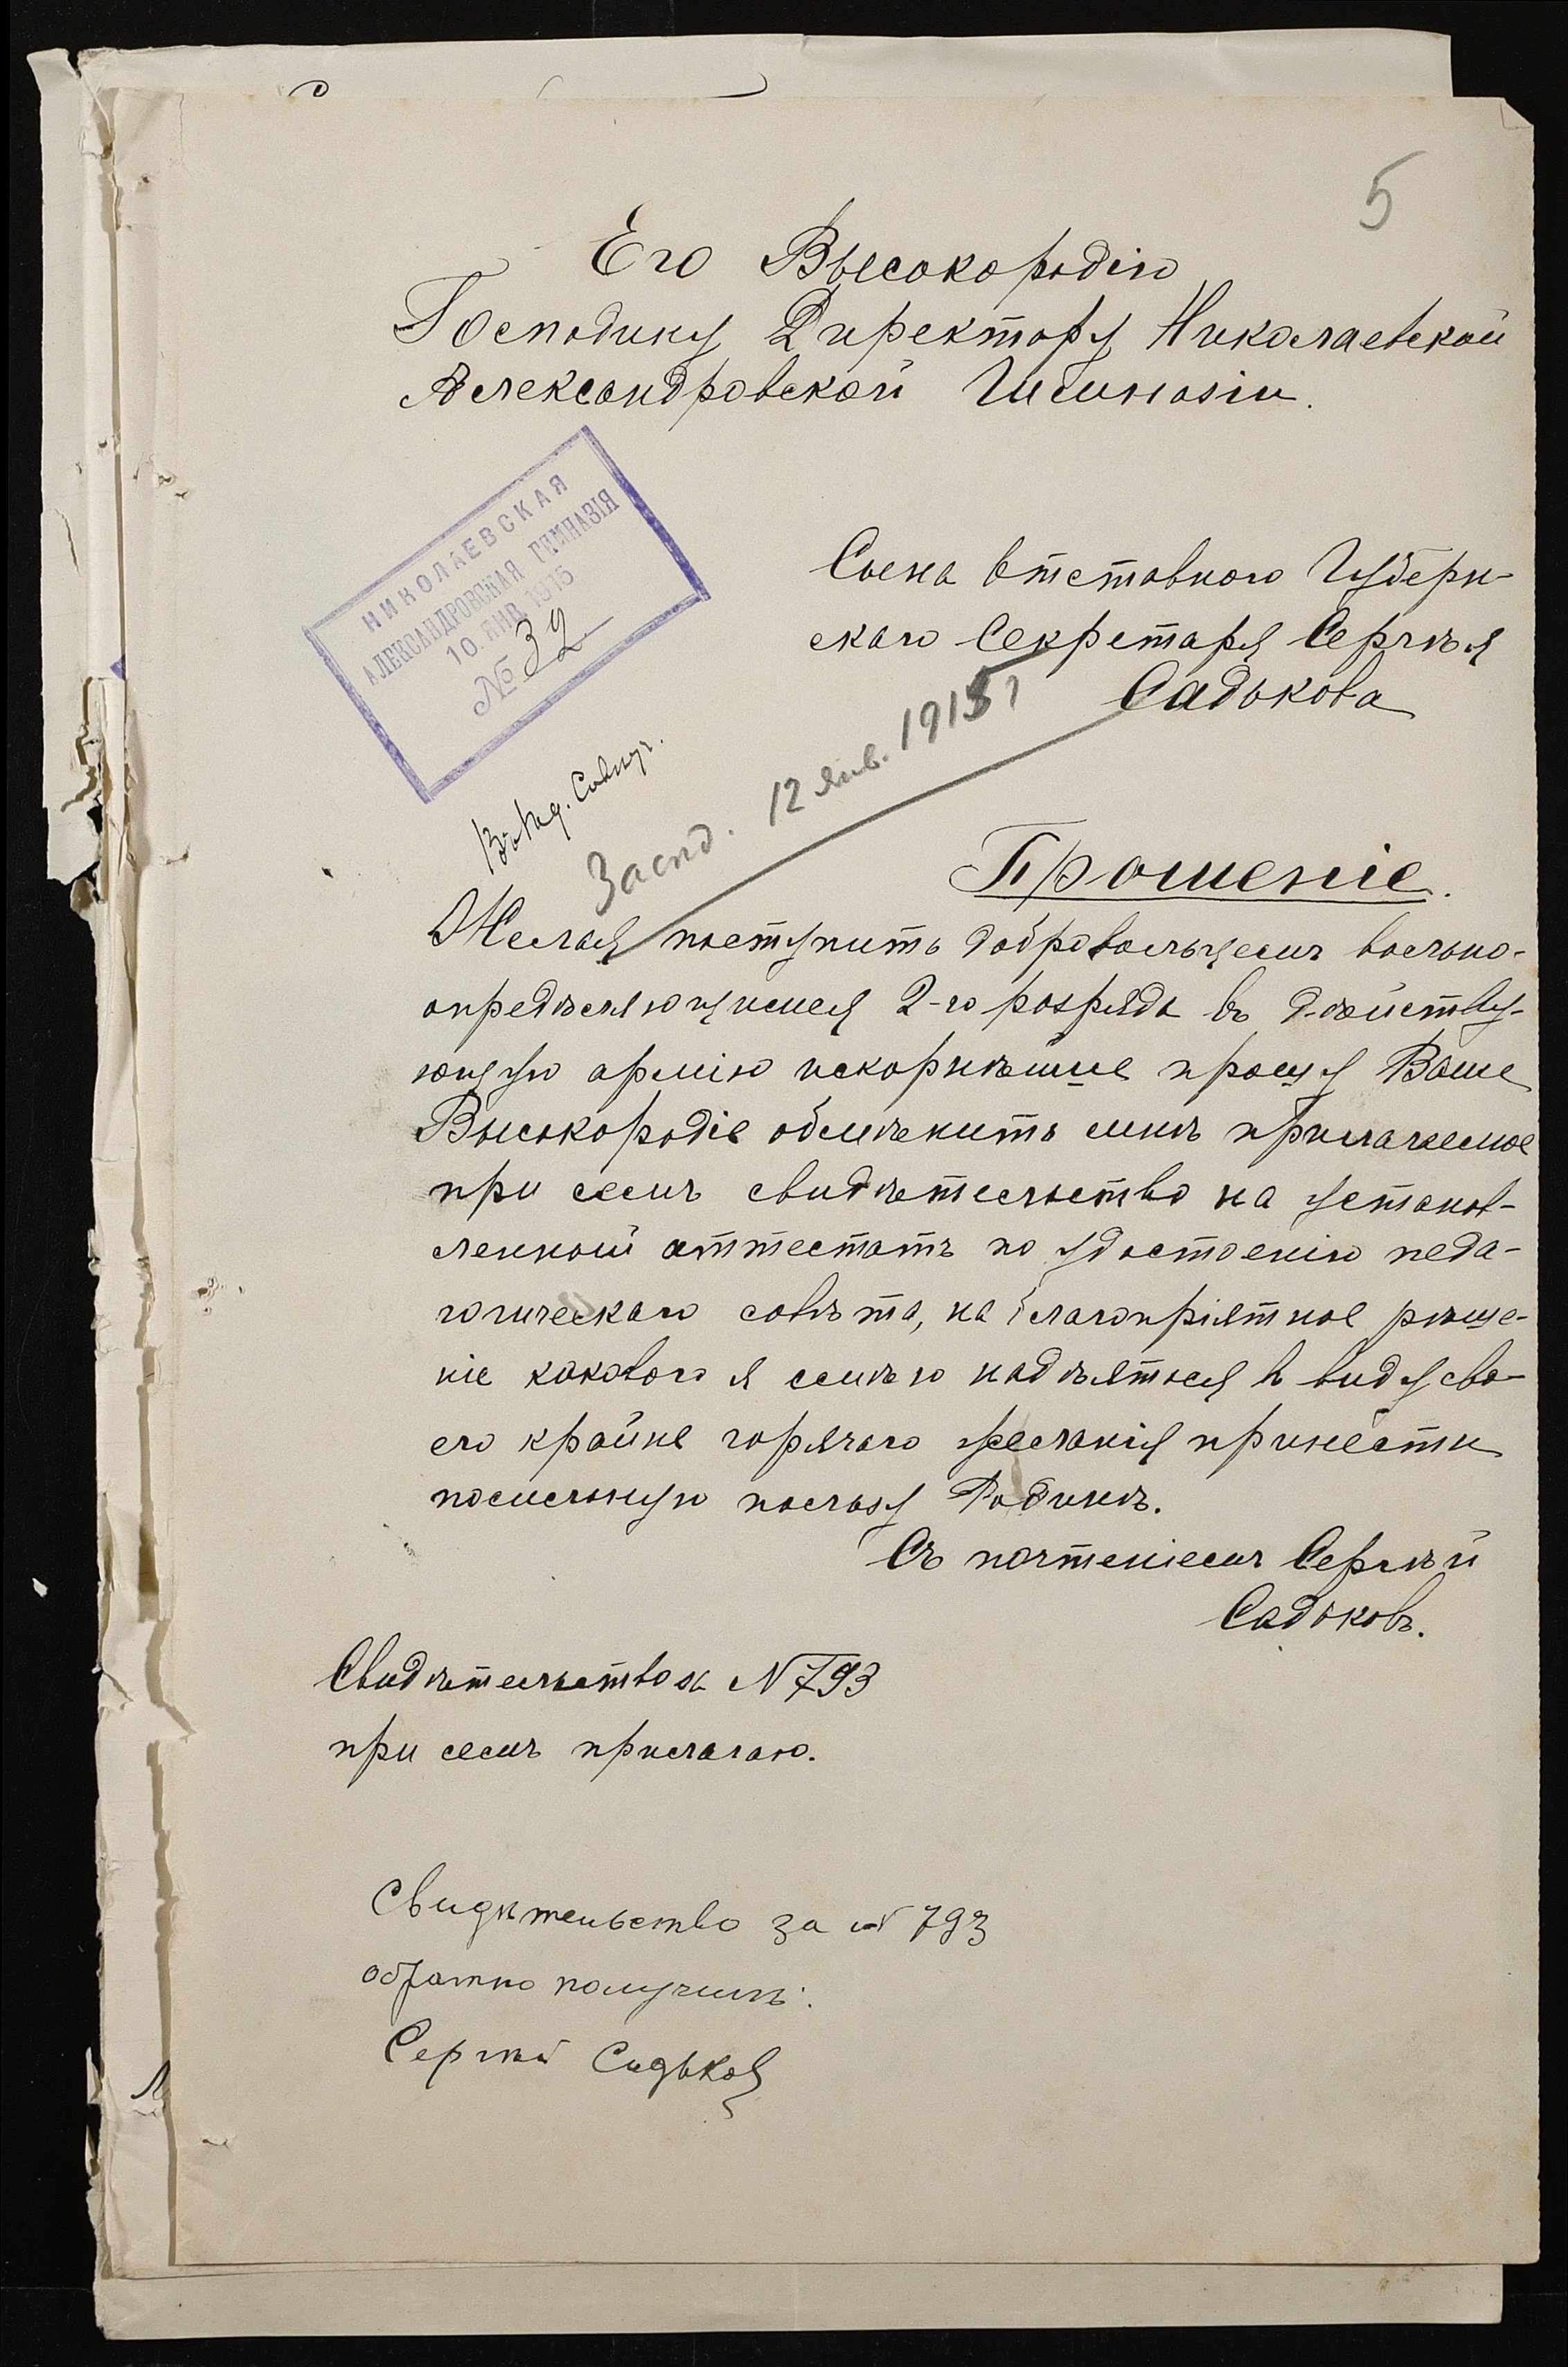 5
Его Высокородію
Господину Директору Николаевской
Александровской Гимназіи.
НИКОЛАЕВСКАЯ
АЛЕКСАНДРОВСКАЯ ГИМНАЗІЯ
10. ЯНВ 1915
№ 32
Сына отставного Губерн-
скаго Секретаря Сергѣя
Садькова
Засѣд. 12 янв. 1915 г
Прошеніе.
Желая поступить добровольцемъ вольно-
опредѣляющимся 2-го розряда въ дѣйству-
ющую армію искорнѣйше прошу Ваше
Высокородіе обмѣнить мнѣ прилагаемое
при семъ свидѣтельство на установ-
ленный аттестатъ по удостоенію педа-
гогическаго совѣта, на благопріятное рѣше-
ніе каковаго я смѣю надѣяться в виду сво-
его крайне горячаго желанія принести
посильную пользу Родинѣ.
Съ почтеніемъ Сергѣй
Садьковъ.
Свидѣтельство за N 793
при семъ прилагаю.
Свидѣтельство за № 793
обратно получилъ.
Сергѣй Садьков